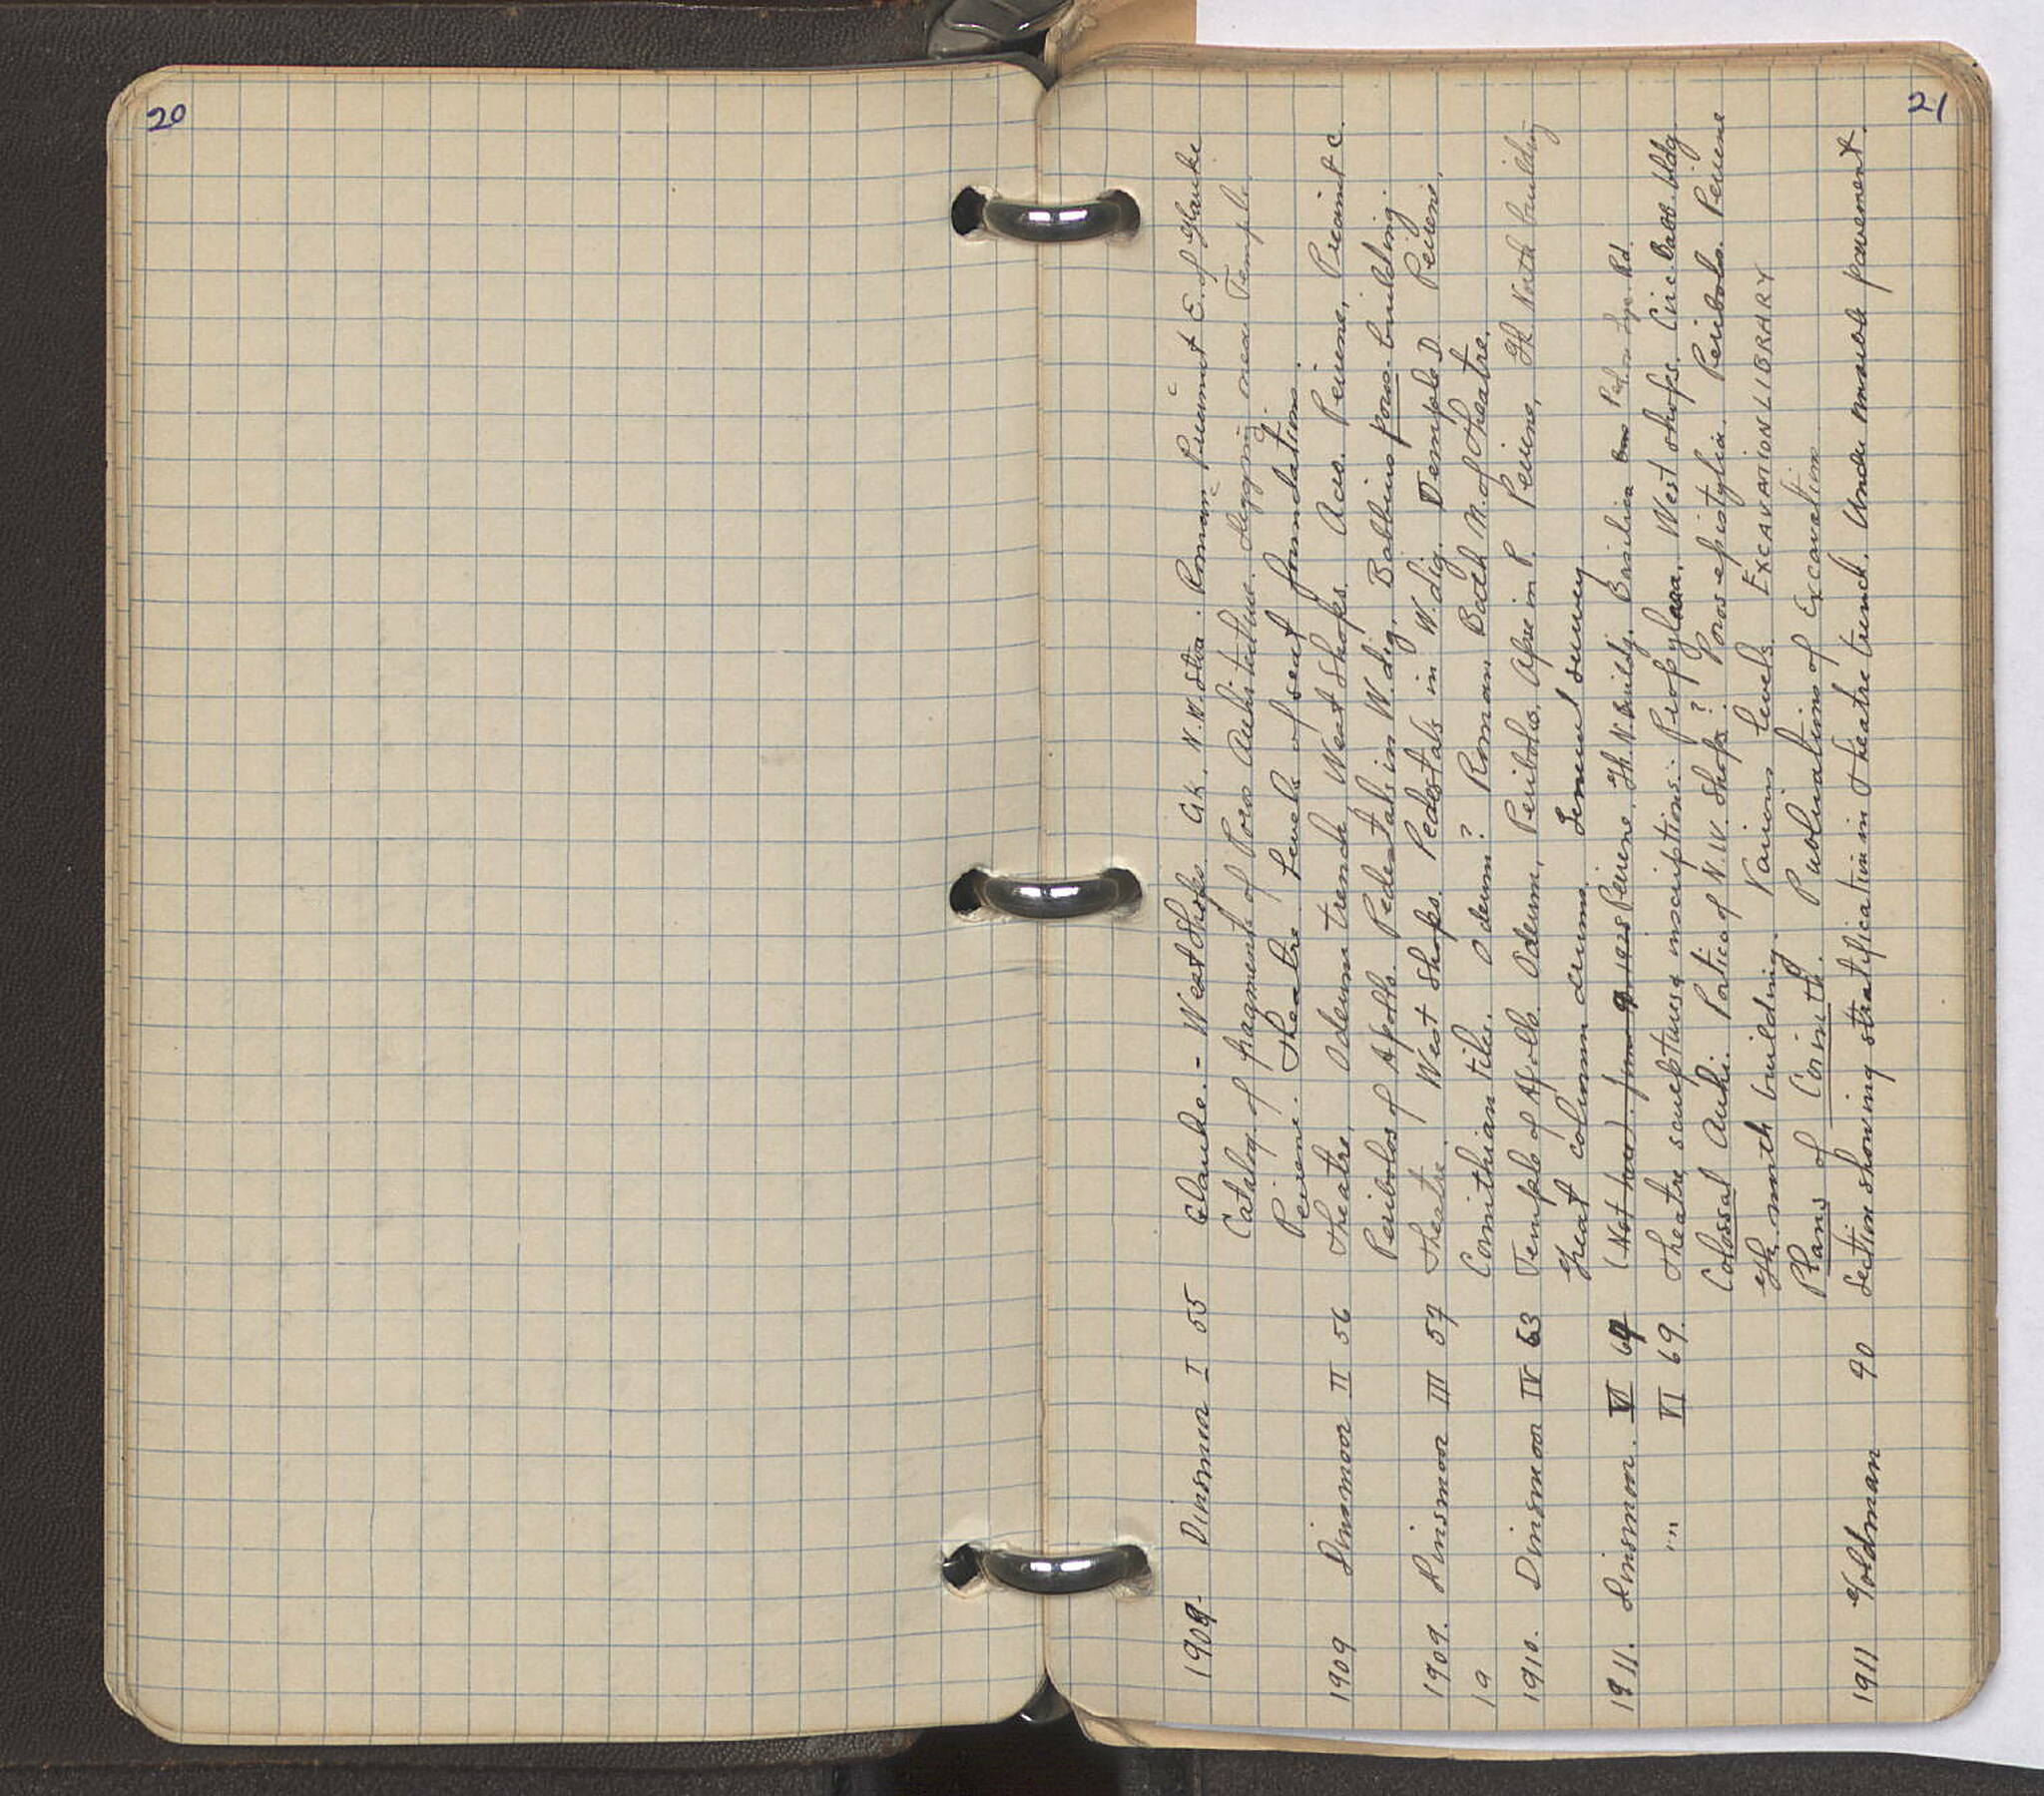 20
21
1909. Dinsmoor I 55 Glauke. - West Shops. Gk. N.W. Stoa. Roman Precinct E. of Glauke
Catalog of fragments of Poros Architecture. Digging near Temple.
Peirene. Theatre Levels of seat foundations.
1909 Dinsmoor II 56 Theatre, Odeum trench, West Shops. Peirene, Precinct C.
Peribolos of Apollo. Pedestals in W. dig. Babbius poros building.
1909. Dinsmoor III 57 Theatre West Shops. Pedestals in W. dig. Temple D Peirene.
19 Corinthian tiles. Odeum? Roman Bath N. of Theatre.
1910. Dinsmoor IV 63 Temple of Apollo. Odeum, Peribolos, Apse in P. Peirene, Gk North building
Great column drums. General survey
1911. Dinsmoor. VI 69 (Not here). from 1925 Peirene. Gk. N. Buildg. Basilica Rd.
"" VI 69. Theatre sculptures & inscriptions. Propylaea, West shops. Circ. Babb. bldg.
Colossal Archi. Portico of N.W. Shops? Poros epistylia. Peribolos. Peirene
Gk north building. Various levels. EXCAVATION LIBRARY
Plans of Corinth. Publications of Excavation
1911 Goldman 90 Section showing stratification in theatre trench. Under marble pavement.